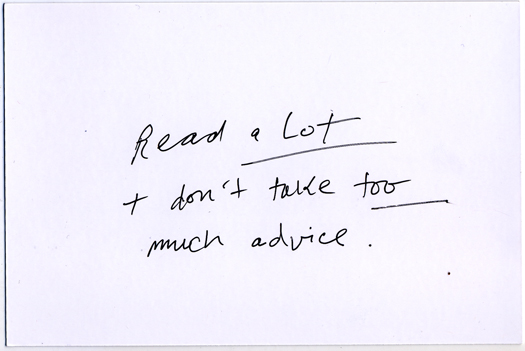 Read a Lot
+ don't take too
much advice.